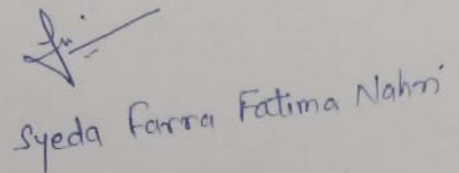 Syeda Farra Fatima Nahri